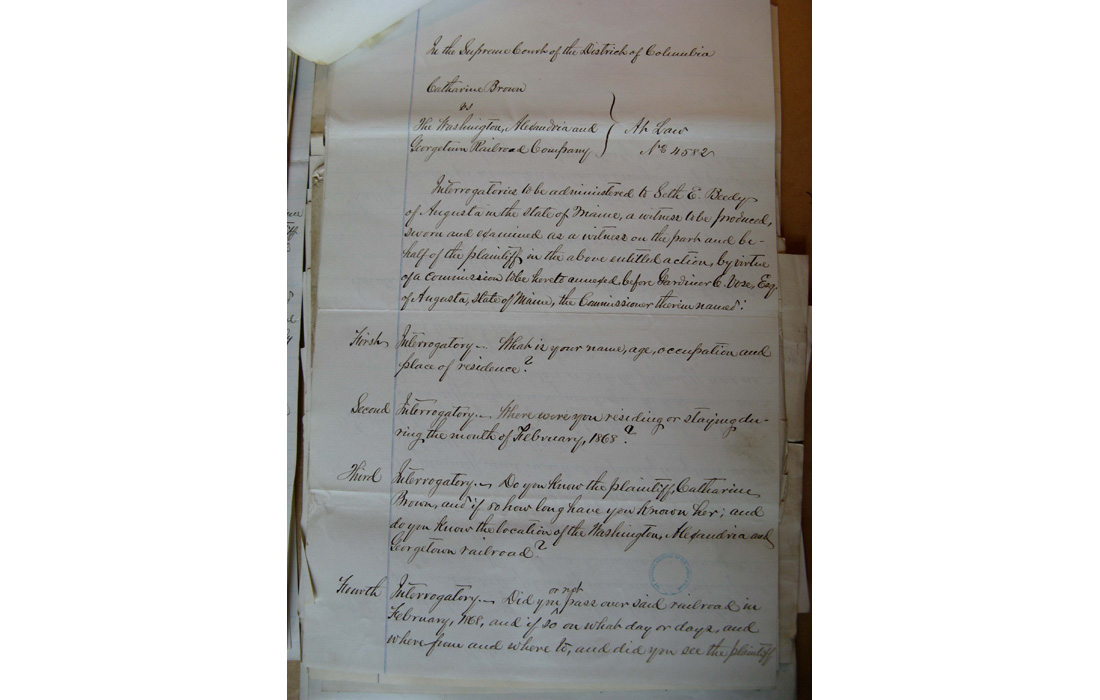 In the Supreme Court of the District of Columbia
Catharine Brown
vs
The Washington, Alexandria and
Georgetown Railroad Company
At Law
No 4582
Interrogatories to be administered to Seth E. Beedy
of Augusta in the state of Maine, a witness to be produced,
sworn and examined as a witness on the part and be-
half of the plaintiff in the above entitled action, by virtue
of a commission to be hereto annexed, before Gardiner C. Vose, Esq.
of Augusta, state of Maine, the Commissioner therein named:
First Interrogatory— What is your name, age, occupation and
place of residence?
Second Interrogatory— Where were you residing or staying du-
ring the month of February, 1868?
Third Interrogatory— Do you know the plaintiff, Catharine
Brown, and if so how long have you known her; and
do you know the location of the Washington, Alexandria and
Georgetown railroad?
Fourth Interrogatory— Did you or not pass over said railroad in
February, 1868, and if so on what day or days, and
where from and where to, and did you see the plaintiff